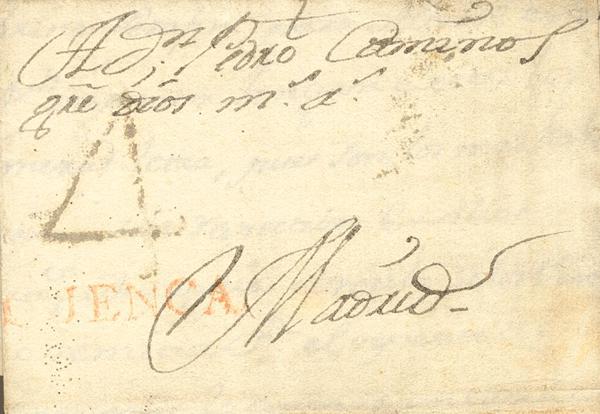 A Dn Pedro Caminos
gũe dios ms as
4
CUENCA
Madrid